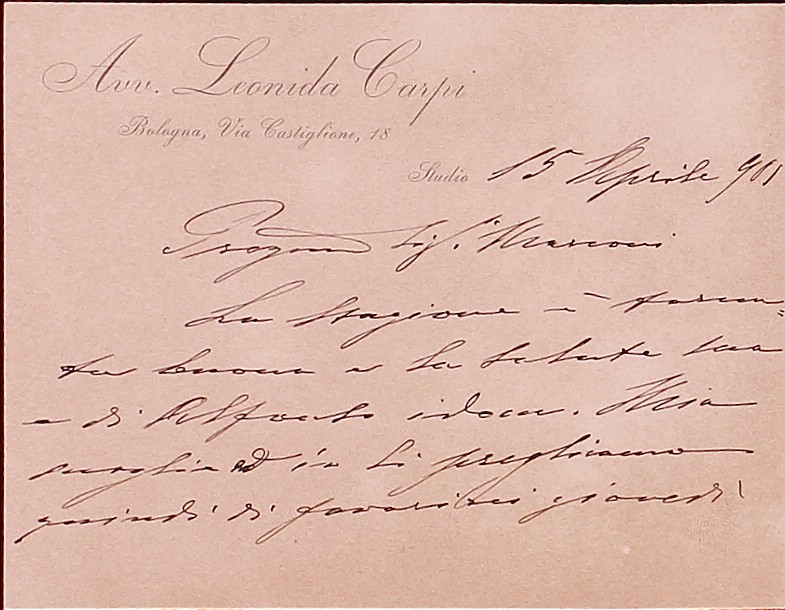 Avv. Leonida Carpi
Bologna, Via Castiglione, 18
Studio 15 Aprile 901
Pregmo Sig. Marconi
La stagione è torna=
ta buona e la salute sua
e di Alfonso idem. Mia
moglie ed io li preghiamo
quindi di favorirci giovedì